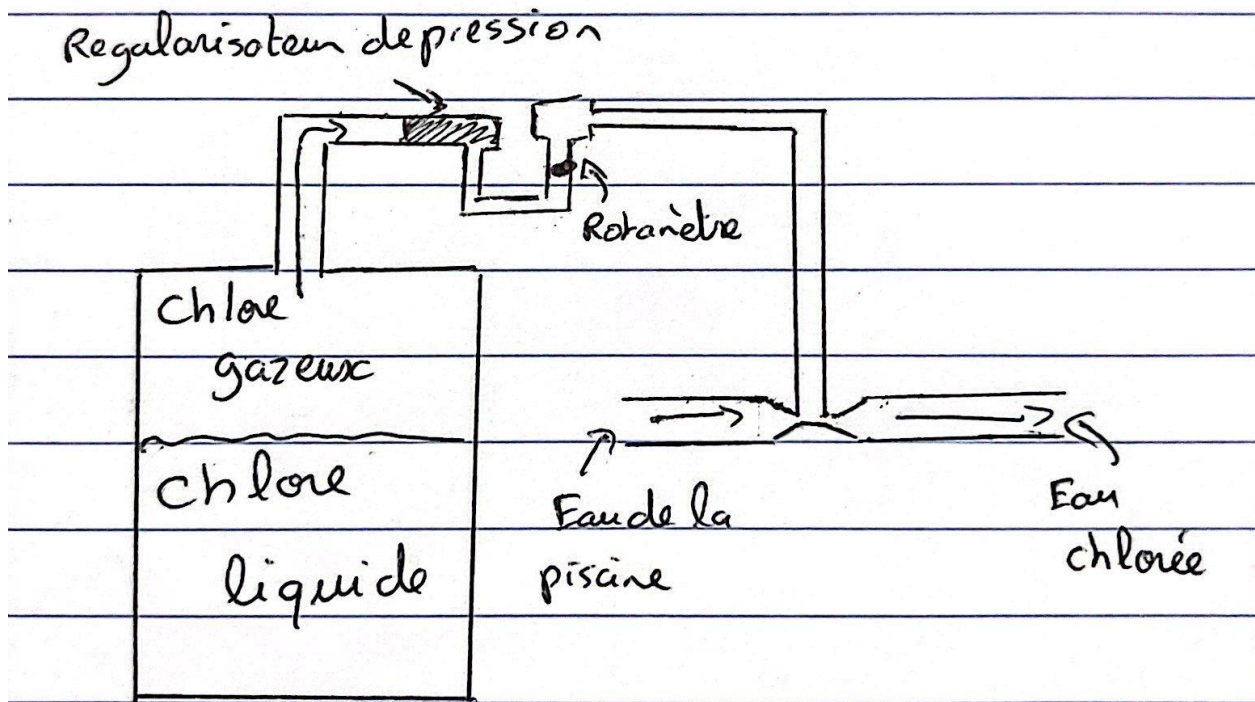 Regularisateur depression
Rotamètre
Chlore
gazeux
Chlore
liquide
Eau de la
piscine
Eau
chlorée